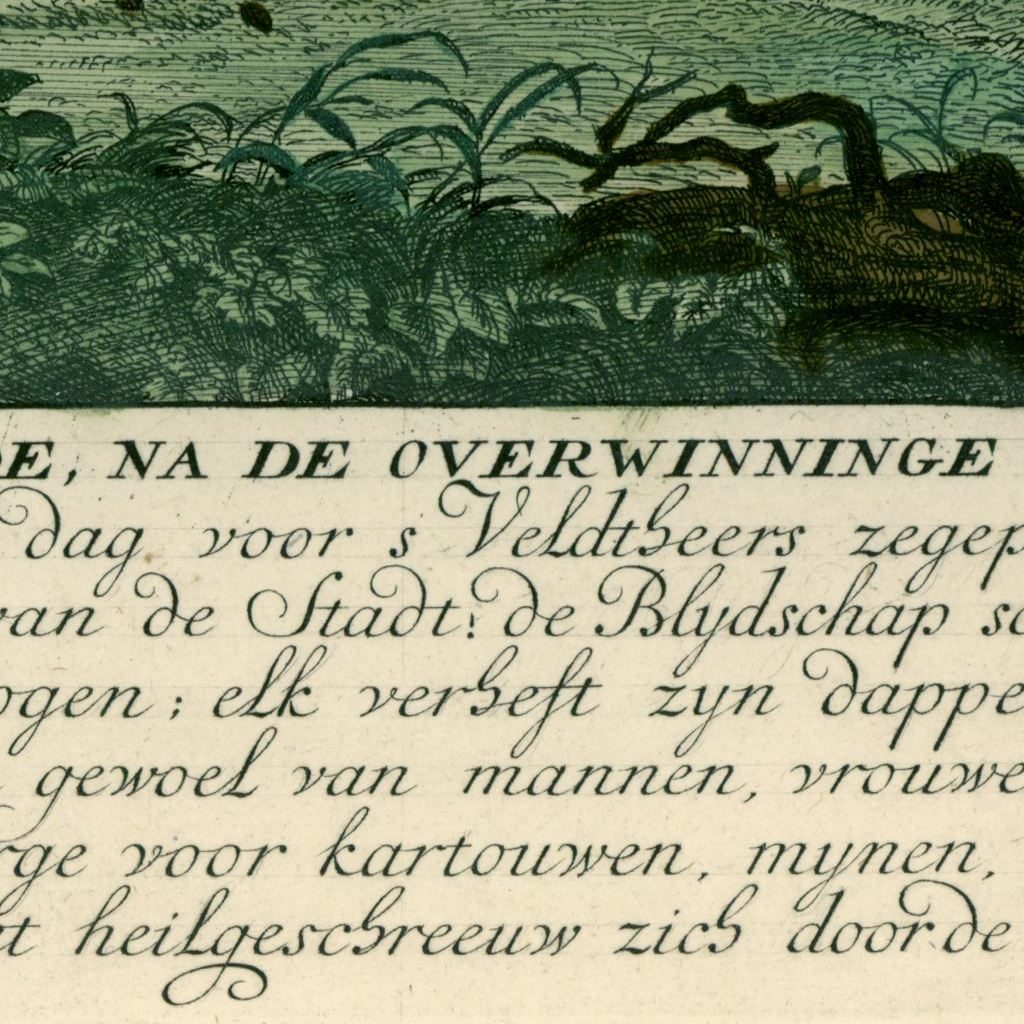 DE, NA DE OVERWINNINGE
dag voor s Veldtheers zegep
van de Stadt! de Blydschap sc
ogen; elk verheft zyn dappe
gewoel van mannen, vrouwe
rge voor kartouwen, mynen,
et heilgeschreeuw zich door de